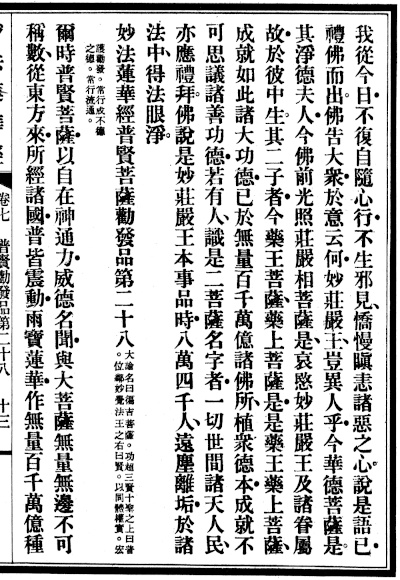 我從今日不復自隨心行不生邪見憍慢瞋恚諸惡之心說是語已
禮佛而出佛告大衆於意云何妙莊嚴王豈異人乎今華德菩薩是
其淨德夫人今佛前光照莊嚴相菩薩是哀愍妙莊嚴王及諸眷屬
故於彼中生其二子者今藥王菩薩藥上菩薩是是藥王藥上菩薩
成就如此諸大功德已於無量百千萬億諸佛所植衆德本成就不
可思議諸善功德若有人識是二菩薩名字者一切世間諸天人民
亦應禮拜佛說是妙莊嚴王本事品時八萬四千人遠塵離垢於諸
法中得法眼淨
妙法蓮華經普賢菩薩勸發品第二十八
大論名曰徧吉菩薩。功超三賢十聖之上曰普
。位鄰妙覺法王之右曰賢。以同體權實。宏
護勸發。常行成不德
之德。常行流通。
爾時普賢菩薩以自在神通力威德名聞與大菩薩無量無邊不可
稱數從東方來所經諸國普皆震動雨寶蓮華作無量百千萬億種
卷七 普賢勸發品第二十八 十三